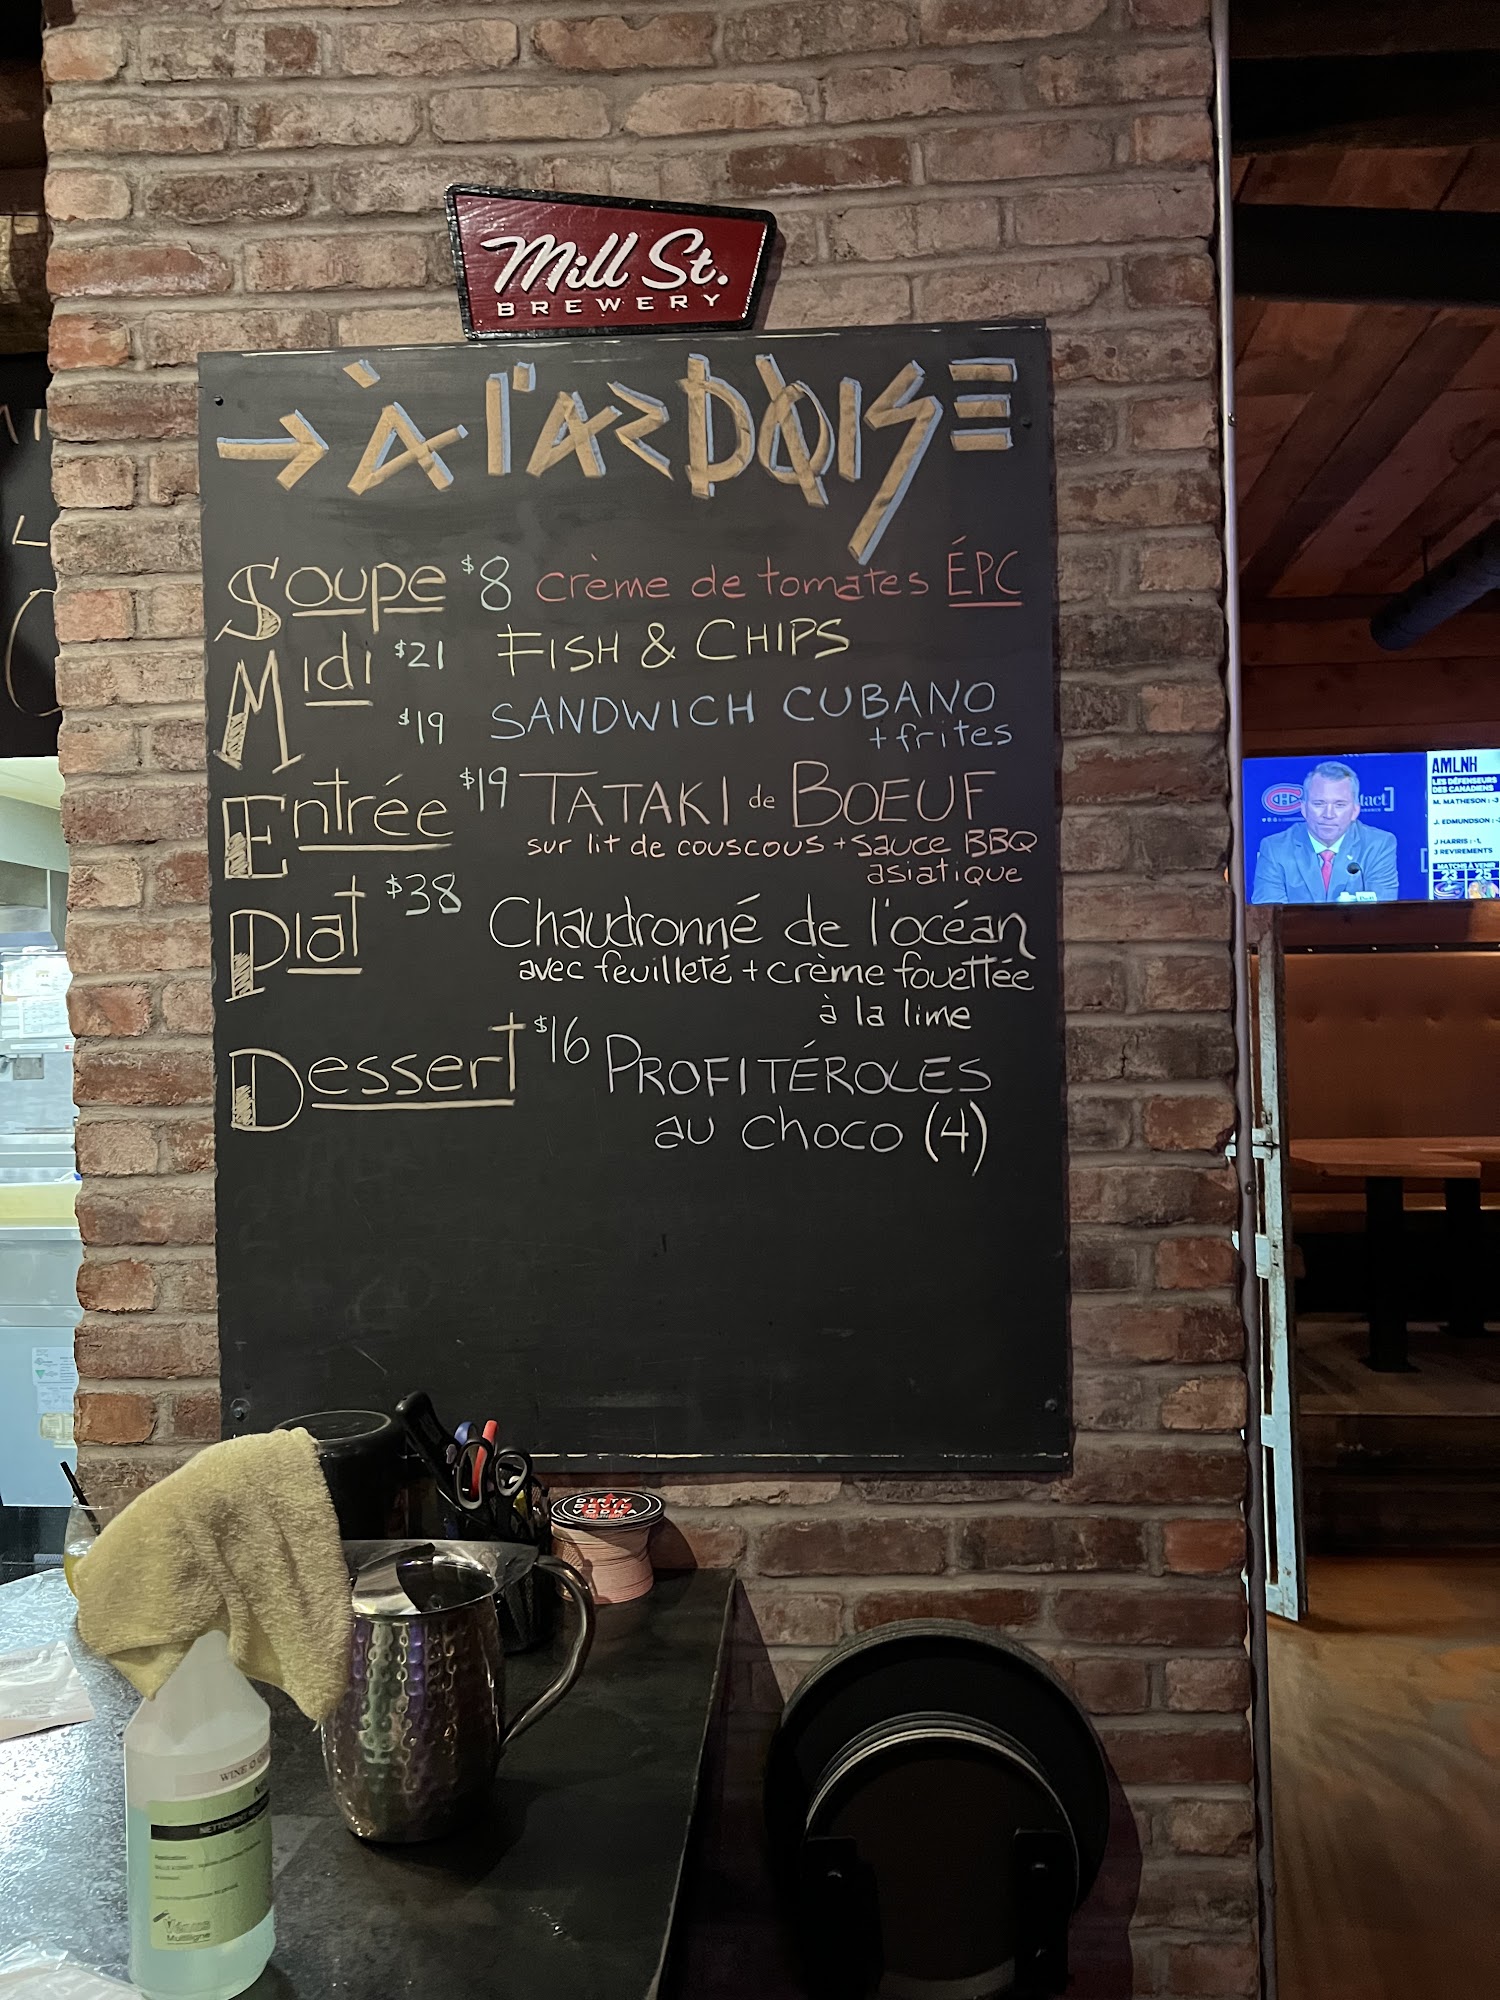 Mill St.
BREWERY
→ À l'ARDOISE
Soupe $8 crème de tomates ÉPC
Midi $21 FISH & CHIPS
$19 SANDWICH CUBANO
+ frites
Entrée $19 TATAKI de BOEUF
sur lit de couscous + sauce BBQ
asiatique
Plat $38 Chaudronné de l'océan
avec feuilleté + crème fouettée
à la lime
Dessert $16 PROFITÉROLES
au choco (4)
AMLNH
LES DÉFENSEURS
DES CANADIENS
M. MATHESON : -3
J. EDMUNDSON :
J HARRIS : -1,
3 REVIREMENTS
MATCHS À VENIR
23 25
DIRTY
DEVIL
VODKA
WINE
NETTOYANT
Multiligne